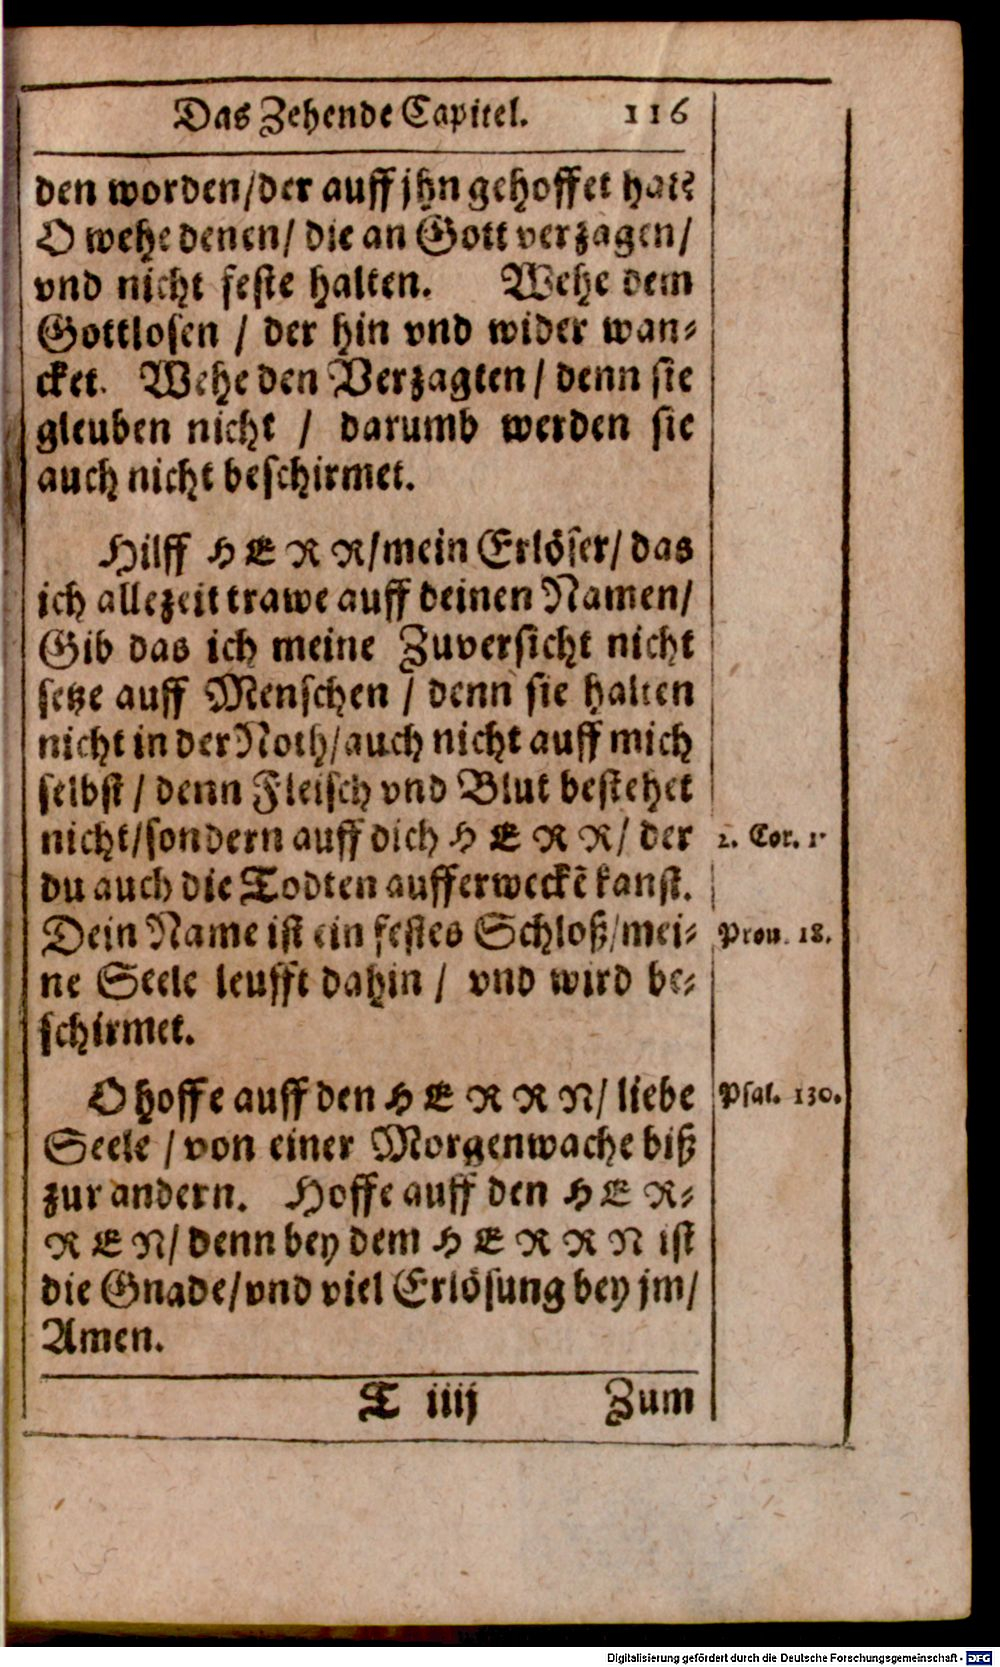 Das Zehende Capitel. 116
den worden/der auff jhn gehoffet hat?
O wehe denen/ die an Gott verzagen/
vnd nicht feste halten. Wehe dem
Gottlosen / der hin vnd wider wan-
cket. Wehe den Verzagten / denn sie
gleuben nicht / darumb werden sie
auch nicht beschirmet.
Hilff HERR/mein Erlöser/ das
ich allezeit trawe auff deinen Namen/
Gib das ich meine Zuversicht nicht
setze auff Menschen / denn sie halten
nicht in der Noth/auch nicht auff mich
selbst / denn Fleisch vnd Blut bestehet
nicht/sondern auff dich HERR/ der
2. Cor. 1.
du auch die Todten aufferweckẽ kanst.
Dein Name ist ein festes Schloß/mei-
Prou. 18.
ne Seele leufft dahin / vnd wird be-
schirmet.
O hoffe auff den HERRN/ liebe
Psal. 130.
Seele / von einer Morgenwache biß
zur andern. Hoffe auff den HER-
REN/ denn bey dem HERRN ist
die Gnade/vnd viel Erlösung bey jm/
Amen.
T iiij Zum
Digitalisierung gefördert durch die Deutsche Forschungsgemeinschaft - DFG